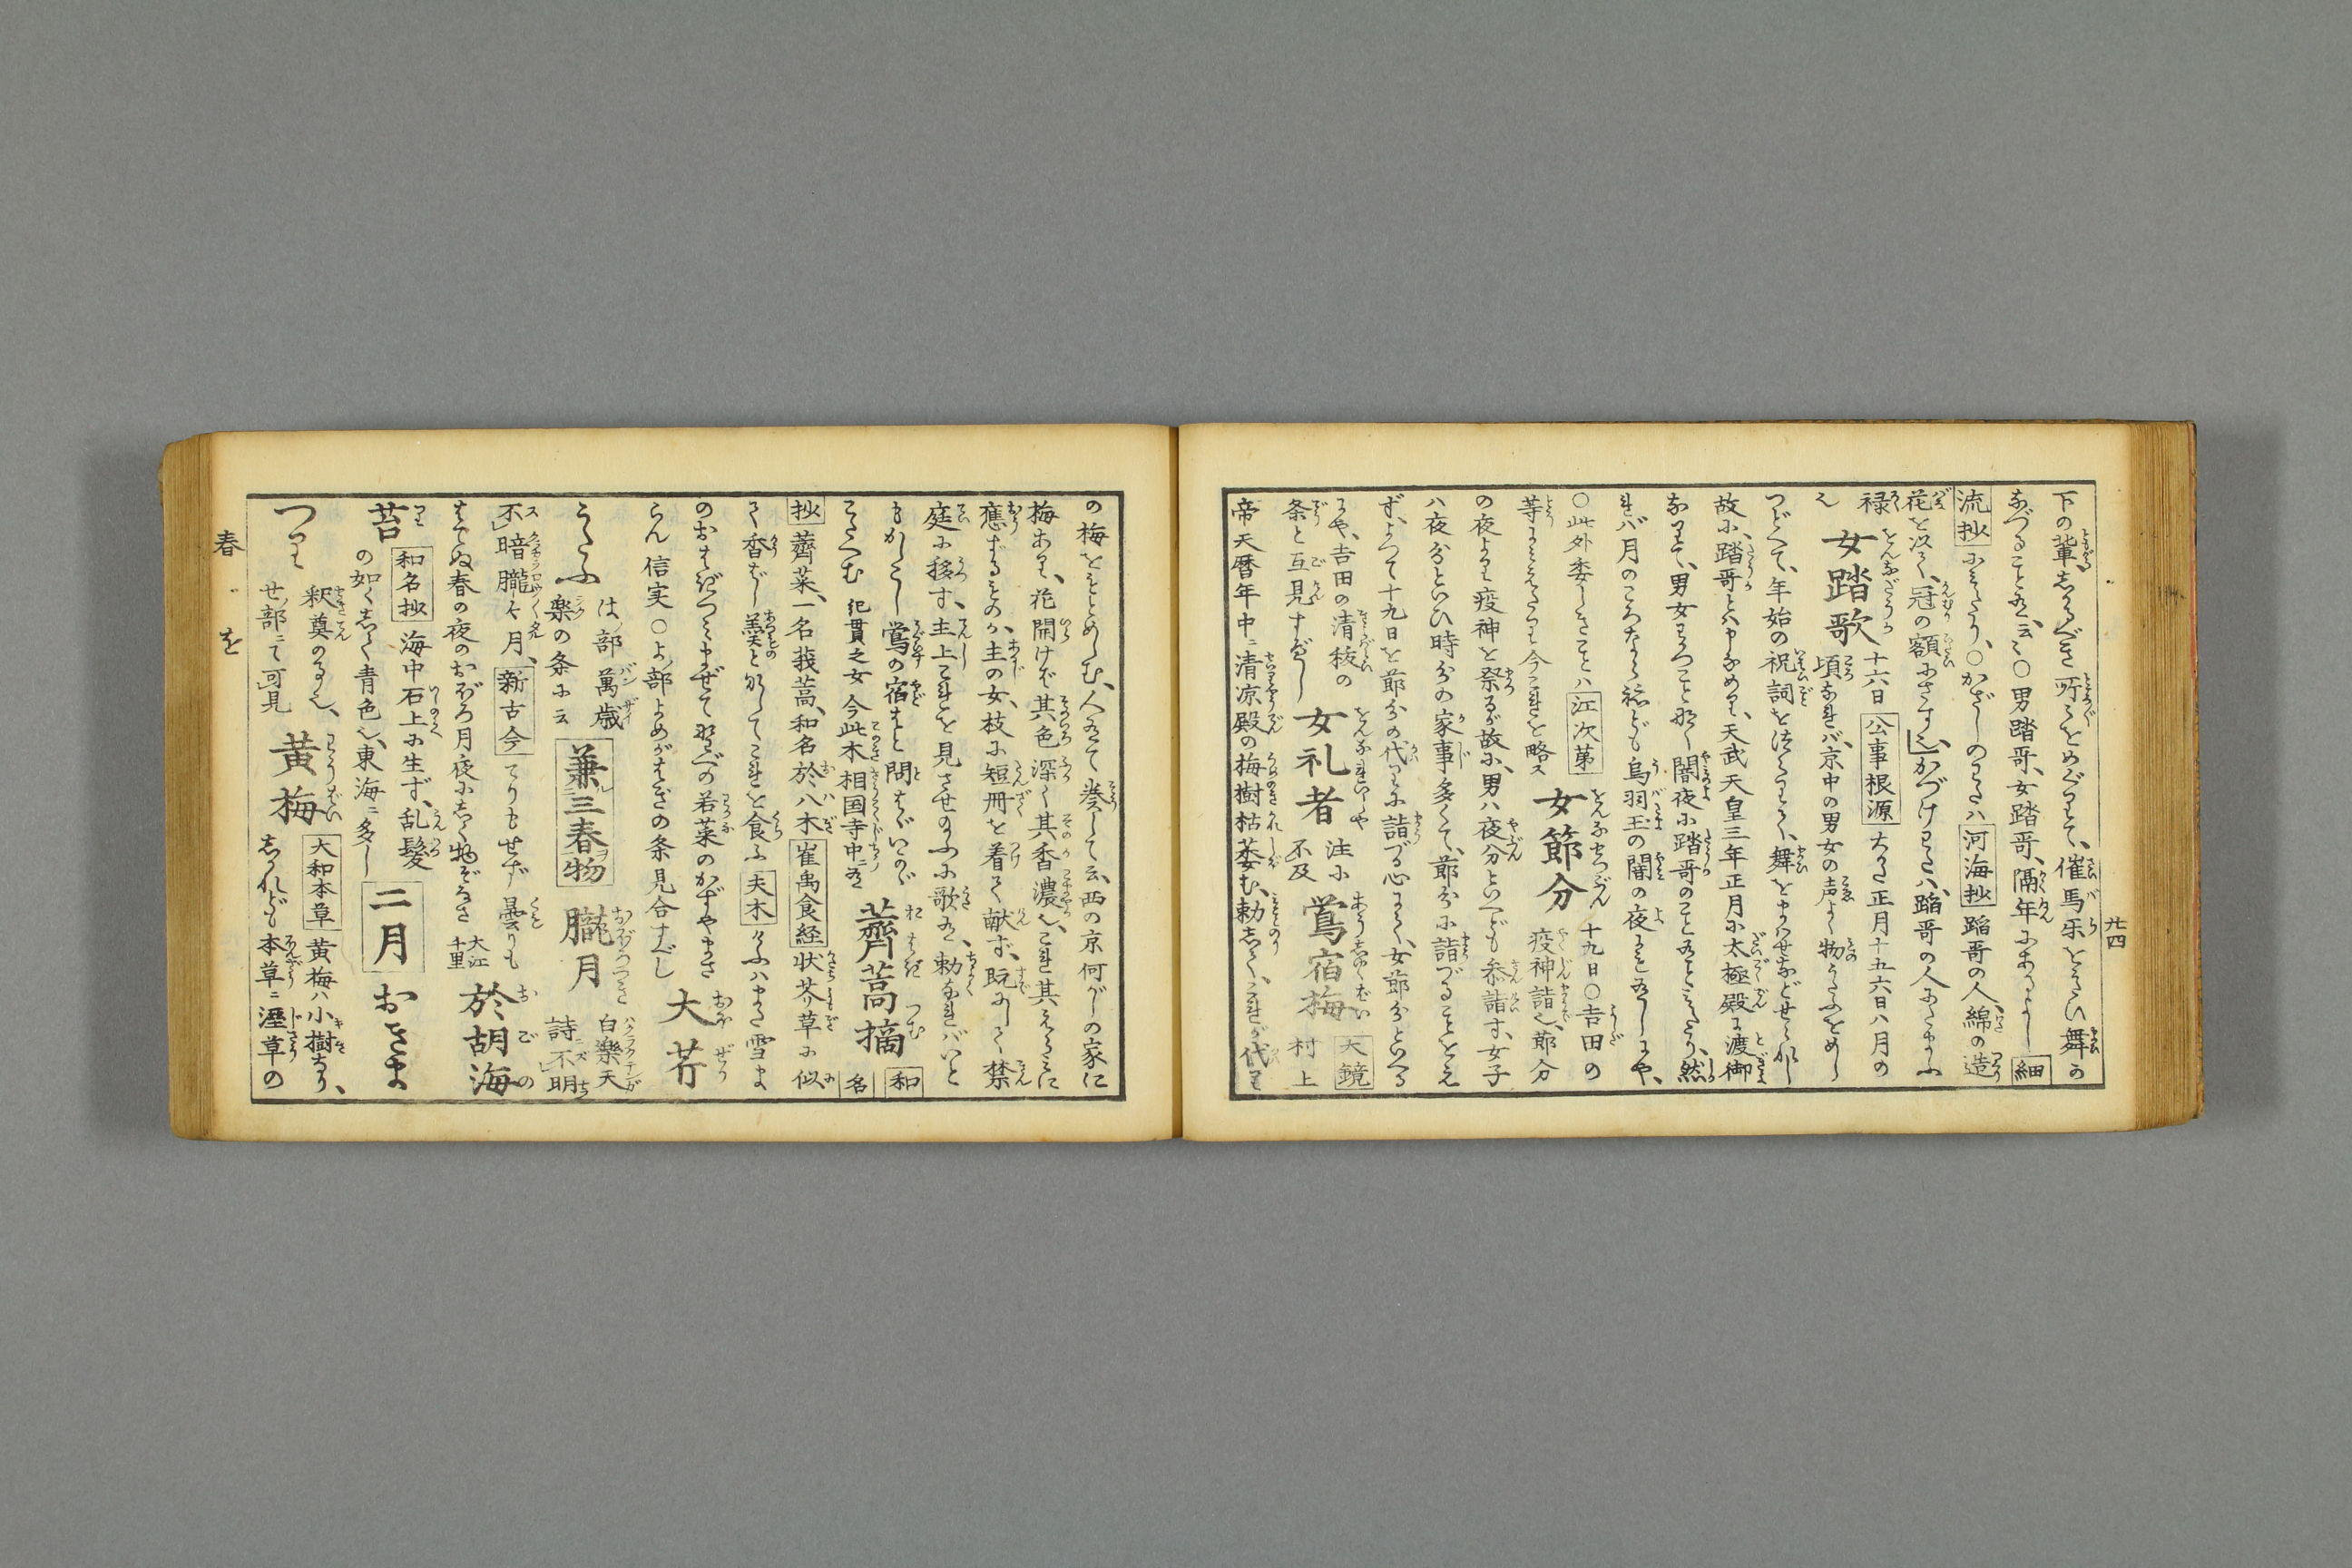 廿四
下の輩しかるべき所々をめぐりて、催馬楽をうたひ舞か
なづること也云々○男踏哥、女踏哥、隔年にあるよし 細
流抄 にみえたり、○かざしのわたハ 河海抄 踏哥の人、綿の造
花を以て、冠の額にさす也、かづけわたハ、踏哥の人にたまふ
禄
也 女踏歌 十六日 公事根源 大かた正月十五六日ハ月の
頃なれバ、京中の男女の声よく物うたふをめし
つどへて、年始の祝詞を作くりて、舞をまはせなどせられし
故に、踏哥とハ申なめり、天武天皇三年正月に太極殿に渡御
なりて、男女わかつこと那く闇夜に踏哥のこと有とみえたり、然
れバ月のころならねども烏羽玉の闇の夜にも有しにや、
○此外委しきことハ 江次第 女節分 十九日○吉田の
等にみえたり今これを略ス 疫神詣也、節分
の夜より疫神を祭るが故に、男ハ夜分といへども参詣す、女子
ハ夜分といひ時分の家事多くて、節分に詣づることをえ
ず、よつて十九日を節分の代りに詣づる心にて、女節分といへる
にや、吉田の清祓の
条と互見すべし 女礼者 注に
不及 鶯宿梅 大鏡 村上
帝天暦年中ニ清凉殿の梅樹枯萎む、勅して、これが代り
の梅をもとめしむ、人有て奏して云、西の京何がしの家に
梅あり、花開けば其色深く其香濃也、これ其えらみに
應ずるものか、主の女、枝に短冊を着て献ず、既にして禁
庭に移す、主上これを見させ給ふに歌有、勅なれバいと
もかしこし鶯の宿はと問はゞいかゞ
こたへむ 紀貫之女 今此木相国寺中ニ有 薺蒿摘 和
名
抄 薺菜、一名莪蒿、和名於八木 崔禹食経 状芥草に似
て香ばし羹となしてこれを食ふ 夫木 けふハまた雪ま
のおはぎつミまぜて野べの若菜のかずやまさ
らん 信実 ○よノ部よめがはぎの条見合すべし 大芹
うたふ は部 萬歳
楽の条に云 兼三春物 朧月 白樂天
詩ニ不明
不暗朧々月、 新古今 てりもせず曇りも
はてぬ春の夜のおぼろ月夜にしく物ぞなき 大江
千里 於胡海
苔 和名抄 海中石上に生ず、乱髮
の如くして青色也、東海ニ多し 二月 おきま
つり 釈奠の事也、
せノ部ニて可見 黄梅 大和本草 黄梅ハ小樹なり、
しかれども本草ニ濕草の
春 を